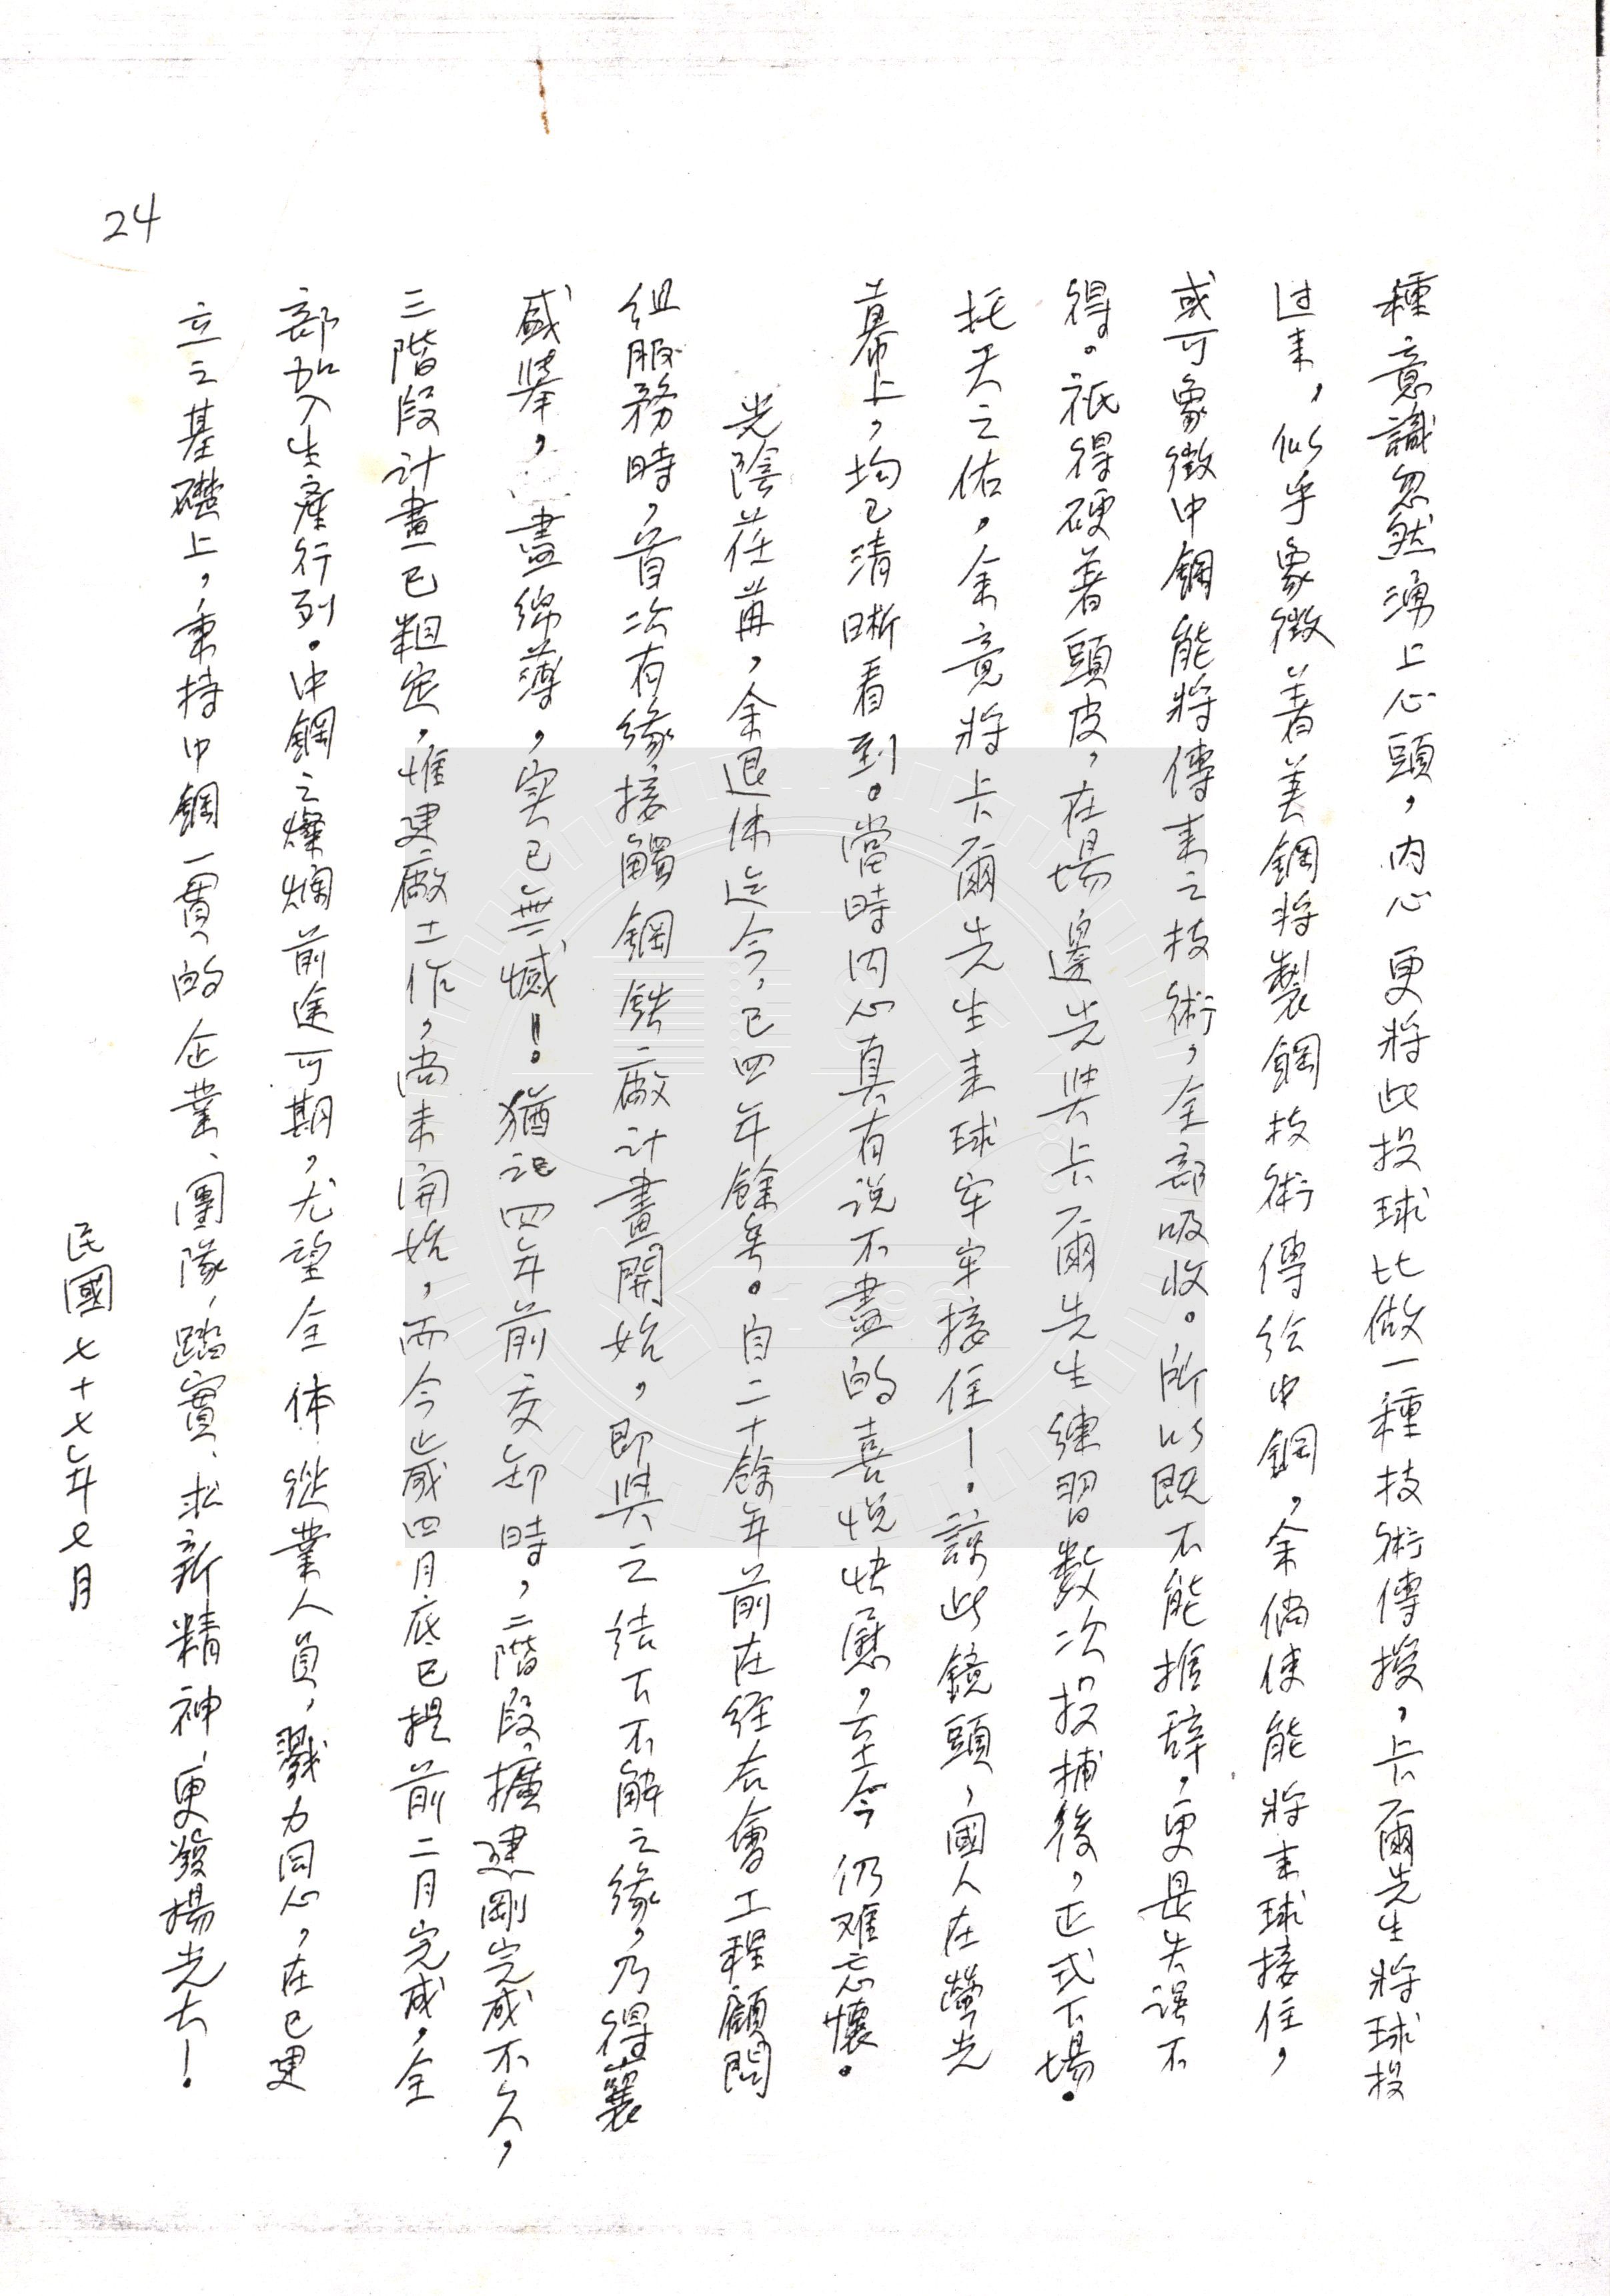 種意識忽然湧上心頭，內心更將此投球比做一種技術傳授，卡爾先生將球投
过来，似乎象徵著美鋼將製鋼技術傳給中鋼，余倘使能將来球接住，
或可象徵中鋼能將傳来之技術，全部吸收。所以既不能推辞，更是失误不
得。祇得硬著頭皮，在場邊先與卡爾先生練習數次投捕後，正式下場。
托天之佑，余竟將卡爾先生来球牢牢接住！。諒此鏡頭，國人在螢光
幕上，均已清晰看到。當時內心真有说不盡的喜悅快慰，至今仍难忘懷。
光陰荏苒，余退休迄今，已四年餘矣。自二十餘年前在经合會工程顧問
组服務時，首次有缘接觸鋼铁廠计畫開始，即與之结下不解之缘，乃得襄
盛舉，盡綿薄，实已無憾！。猶记四年前交卸時，二階段擴建剛完成不久，
三階段计畫已粗定，惟建廠工作，尚未開始，而今歲四月底已提前二月完成，全
部加入生產行列。中鋼之燦爛前途可期，尤望全体從業人員，戮力同心，在已建
立之基礎上，秉持中鋼一貫的企業、團隊、踏實、求新精神，更發揚光大！
民國七十七年七月
24